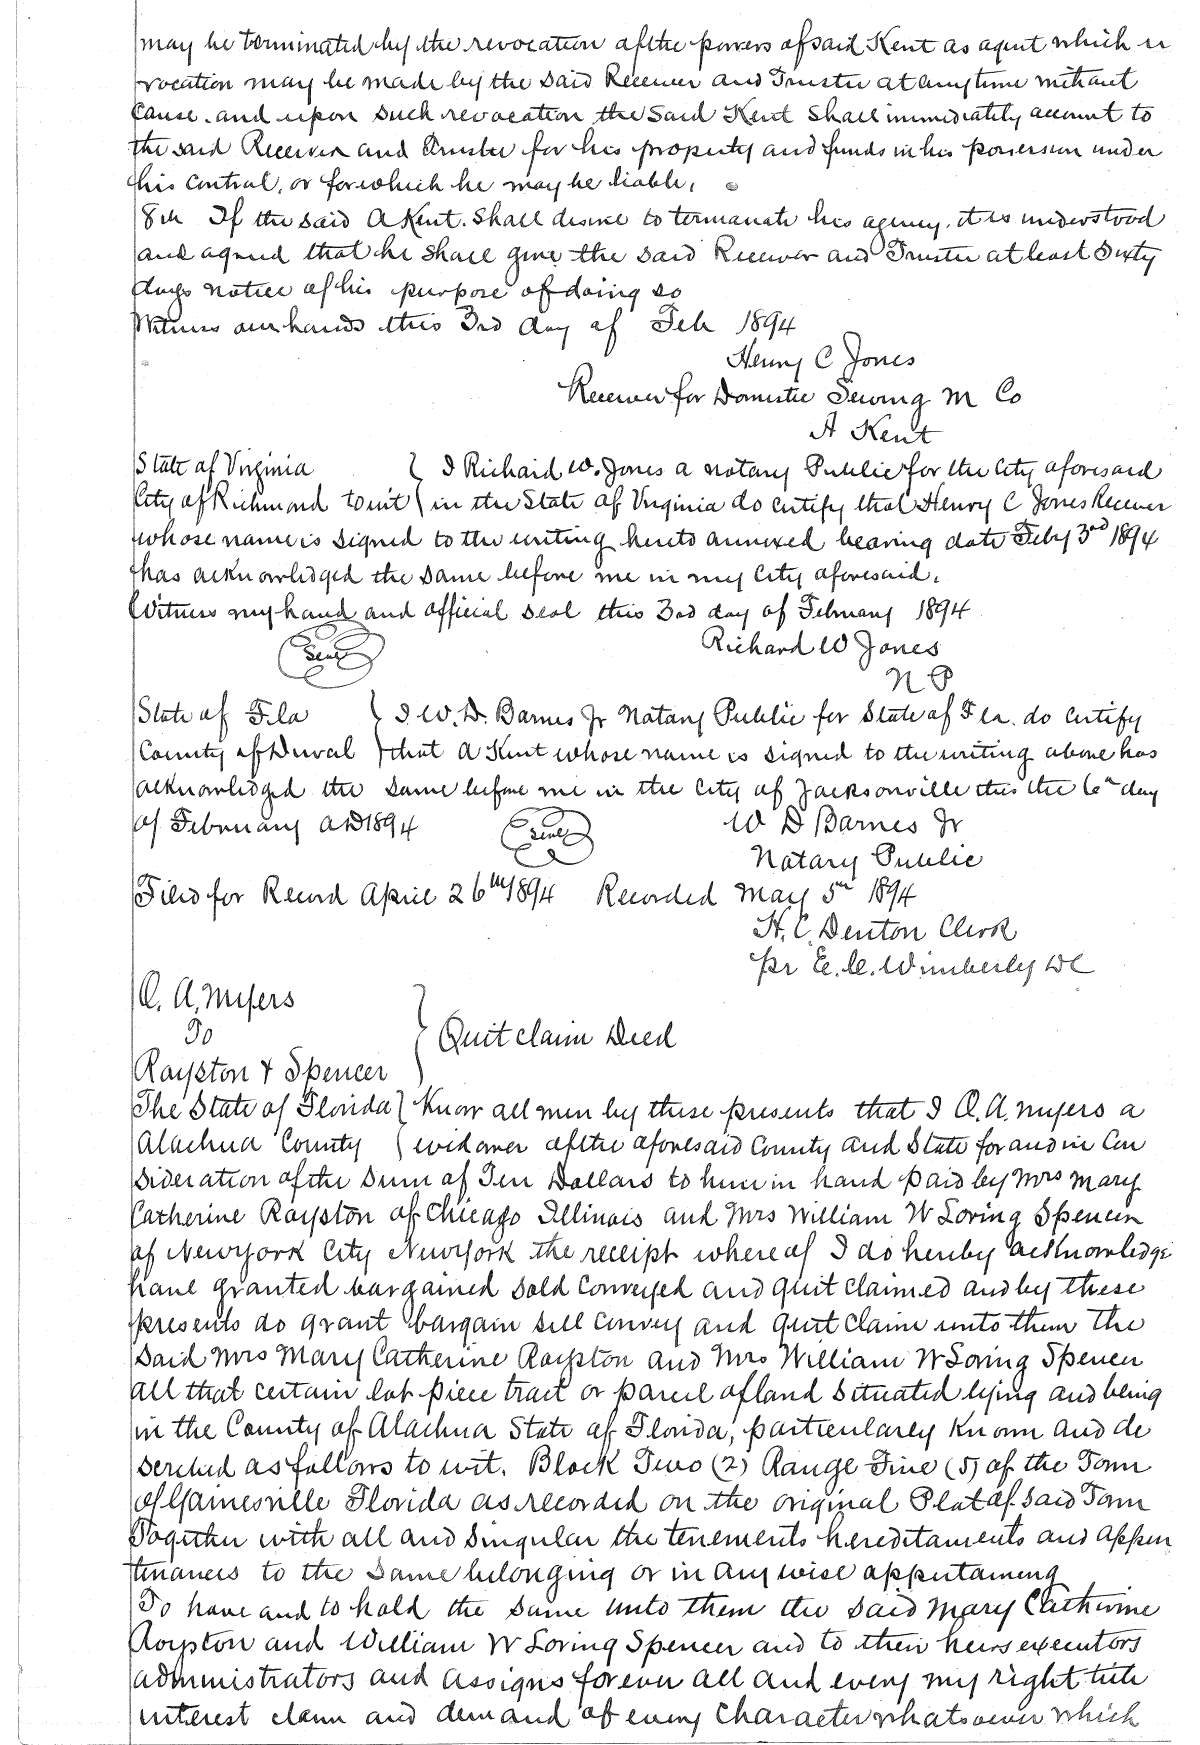 may be terminated by the revocation of the powers of said Kent as agent which re
vocation may be made by the said Receiver and Trustee at any time without
cause. and upon such revocation the said Kent shall immediately account to
the said Receiver and Trustee for his property and funds in his possession under
his control, or for which he may be liable,
8th If the said A Kent. shall desire to termanate his agency, it is understood
and agreed that he shall give the said Receiver and Trustee at least Sixty
days notice of his purpose of doing so
Witness our hands this 3rd day of Feb 1894
Henry C Jones
Receiver for Domestic Sewing M Co
A Kent
State of Virginia } I Richard W. Jones a notary Public for the City aforesaid
City of Richmond to wit } in the State of Virginia do certify that Henry C Jones Receiver
whose name is signed to the writing hereto annexed bearing date Feby 3rd 1894
has acknowledged the same before me in my City aforesaid.
Witness my hand and official seal this 3rd day of February 1894
Seal Richard W Jones
N P
State of Fla } I W. D. Barnes Jr Notary Public for State of Fla. do certify
County of Duval } that A Kent whose name is signed to the writing above has
acknowledged the same before me in the City of Jacksonville this the 6th day
of February AD 1894 Seal W D Barnes Jr
Notary Public
Filed for Record April 26th 1894 Recorded May 5th 1894
H. C. Denton Clerk
pr E. C. Wimberly DC
O. A. Myers
To } Quit claim Deed
Royston & Spencer
The State of Florida } Know all men by these presents that I O. A. Myers a
Alachua County } widower of the aforesaid County and State for and in Con
sideration of the sum of Ten Dollars to him in hand paid by Mrs Mary
Catherine Royston of Chicago Illinois and Mrs William W Loring Spencer
of New York City New York the receipt whereof I do hereby acknowledge
have granted bargained sold conveyed and quit claimed and by these
presents do grant bargain sell convey and quit claim unto them the
said Mrs Mary Catherine Royston and Mrs William W Loring Spencer
all that certain lot piece tract or parcel of land situated lying and being
in the County of Alachua State of Florida, particularly known and de
scribed as follows to wit. Block Two (2) Range Five (5) of the Town
of Gainesville Florida as recorded on the original Plat of said Town
Together with all and singular the tenements hereditaments and appur
tinances to the same belonging or in any wise appertaining
To have and to hold the same unto them the said Mary Catherine
Royston and William W Loring Spencer and to their heirs executors
administrators and assigns forever all and every my right title
interest claim and demand of every character whatsoever which